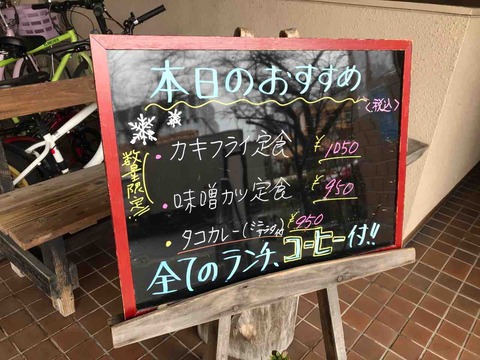 本日のおすすめ
(税込)
数量限定!!
・カキフライ定食 ¥1050
・味噌カツ定食 ¥950
・タコカレー(ミニサラダ付 ¥950
全てのランチ、コーヒー付!!